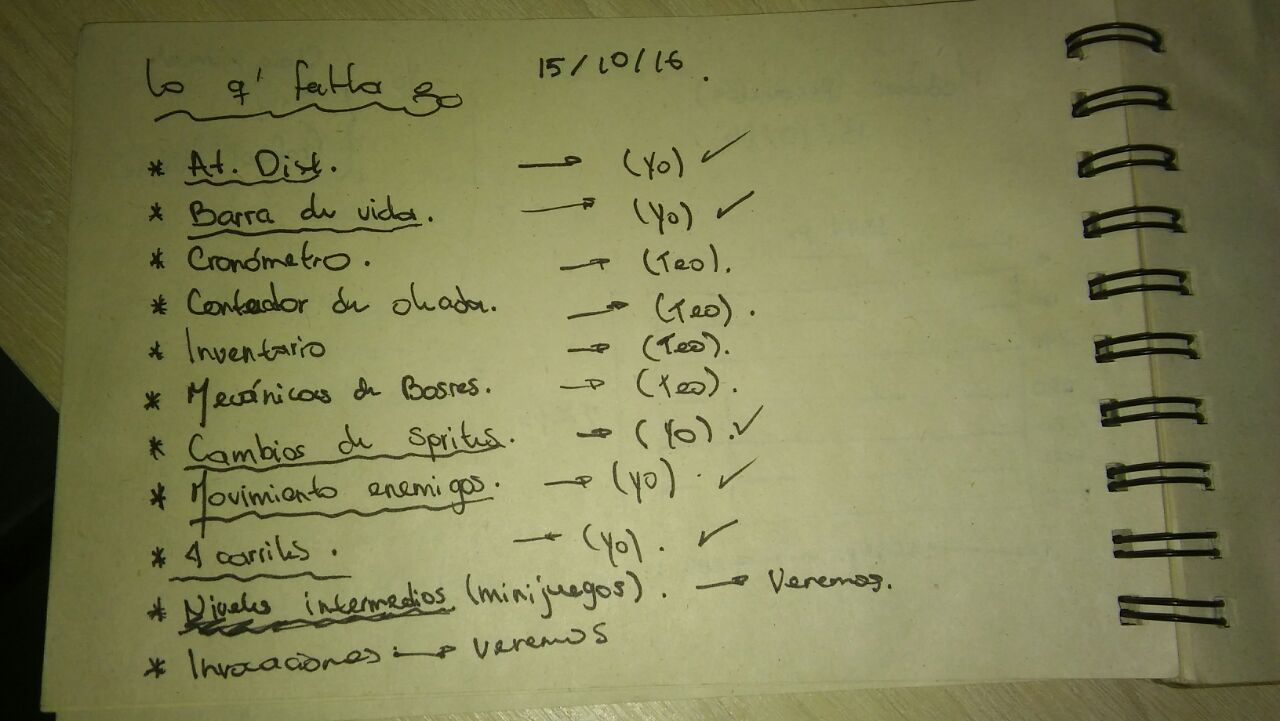 lo q' falta 15/10/16.
* At. Dist. → (Yo) ✓
* Barra de vida. → (Yo) ✓
* Cronómetro. → (Teo).
* Contador de oleada. → (Teo).
* Inventario → (Teo).
* Mecánicas de Bosses. → (Teo).
* Cambios de sprites. → (Yo). ✓
* Movimiento enemigos. → (Yo). ✓
* 4 carriles. → (Yo). ✓
* Niveles intermedios (minijuegos). → Veremos.
* Invocaciones → veremos